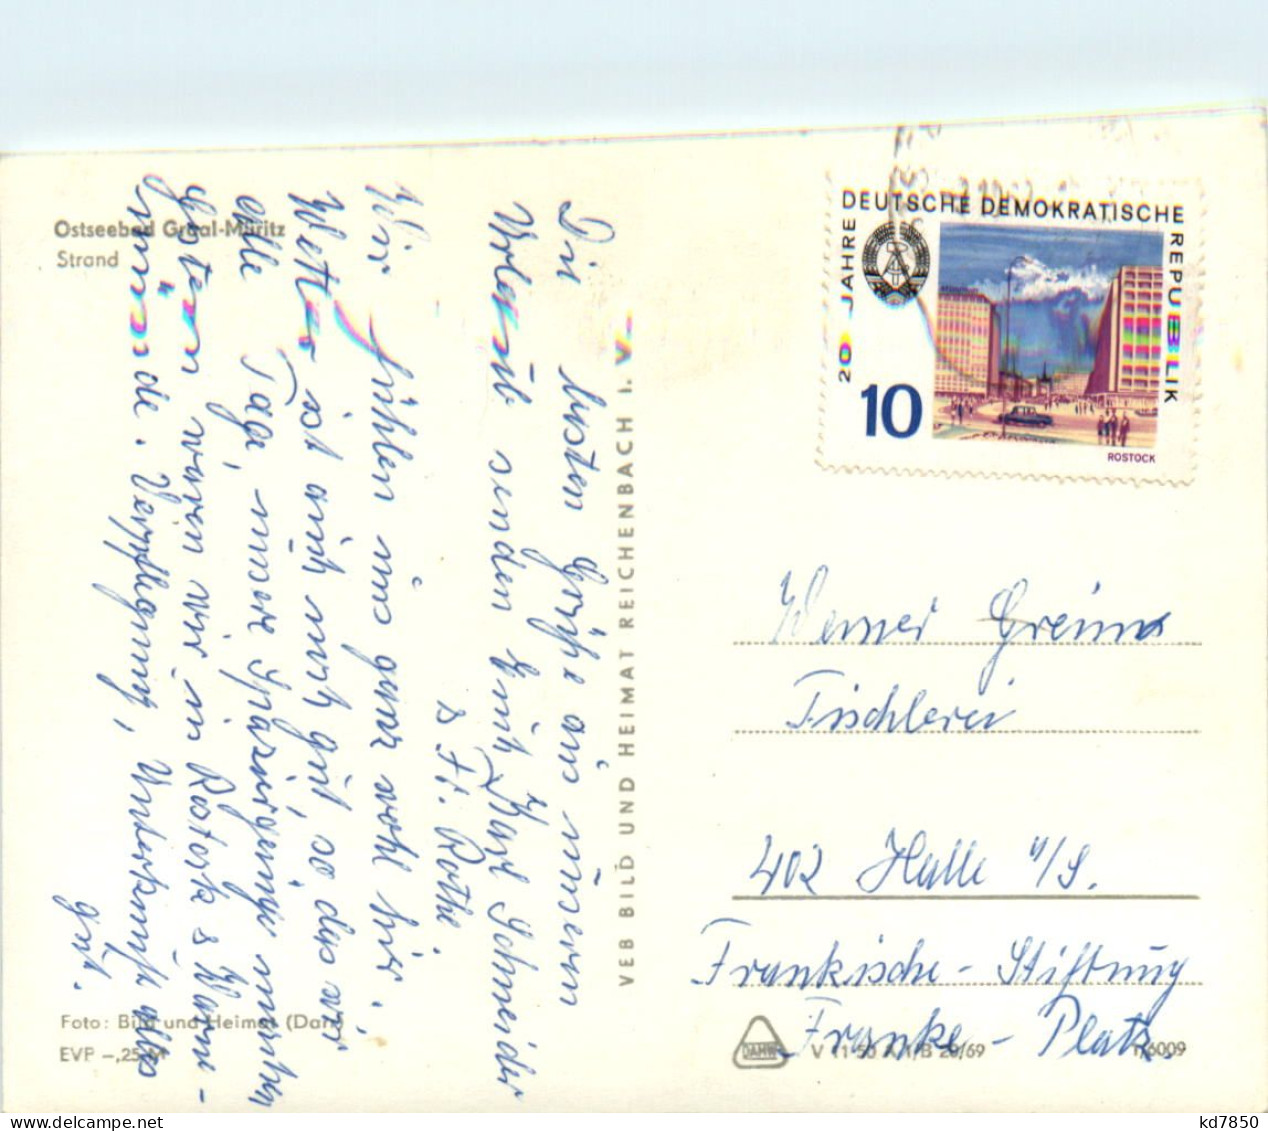 Ostseebad Graal-Müritz
Strand
Die besten Grüße aus unserem
Urlaub senden Euch Karl Schneider
& Fr. Rothe.
Wir fühlen uns ganz wohl hier,
Wetter ist auch noch gut, so das wir
alle Tage, unsere Spaziergänge machen
Gestern waren wir in Rostock & Warne-
münde. Verpflegung, Unterkunft alles
gut.
VEB BILD UND HEIMAT REICHENBACH I. V.
20 JAHRE
DEUTSCHE DEMOKRATISCHE
REPUBLIK
10
ROSTOCK
Werner Greim
Tischlerei
402 Halle a/S.
Frankische-Stiftung
Franke-Platz
Foto: Bild und Heimat (Darr)
EVP -,25 M
DAMW
V 11 50 A 1/B 20/69
1/6009
kd7850